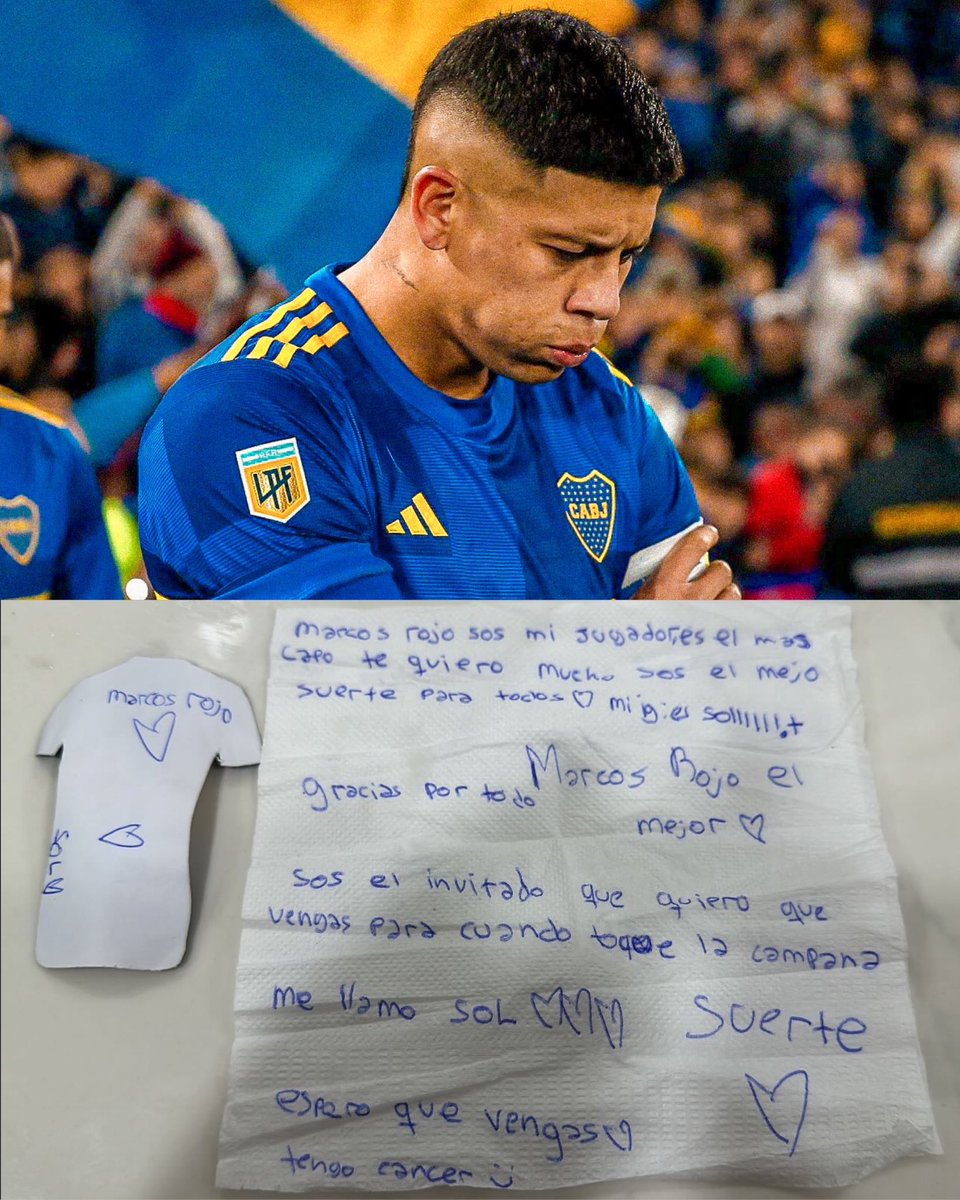 LPF
CABJ
marcos rojo
SOL
marcos rojo sos mi jugador,es el mas
capo te quiero mucho sos el mejo
suerte para todos♡ mi ig:es sol!!!!!!.+
gracias por todo Marcos Rojo el
mejor ♡
sos el invitado que quiero que
vengas para cuando toque la campana
me llamo SOL ♡♡♡ Suerte
espero que vengas♡
tengo cancer